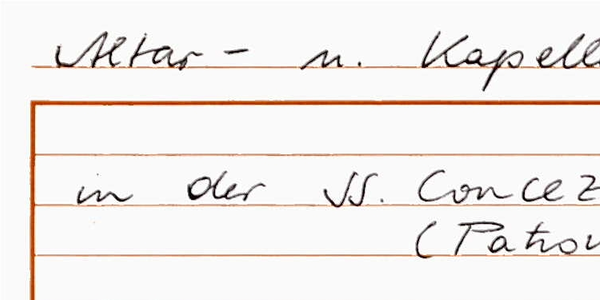 Altar- u. Kapell
in der SS. Concez
(Patron